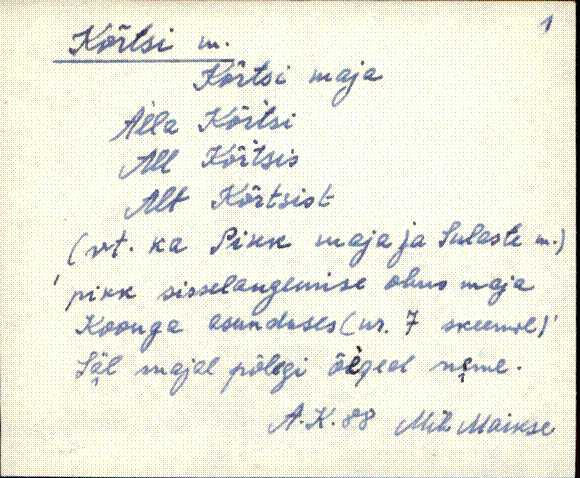 1
Kõrtsi m.
Kõrtsi maja
Alla Kõrtsi
All Kõrtsis
Alt Kõrtsist
(vt. ka Pikk maja ja Sulaste m.)
'pikk sisselangemise ohus maja
Koonga asunduses (nr. 7 skeemil)'
Säl majal põlegi õiged neme.
A.K. 88 Mih Maikse